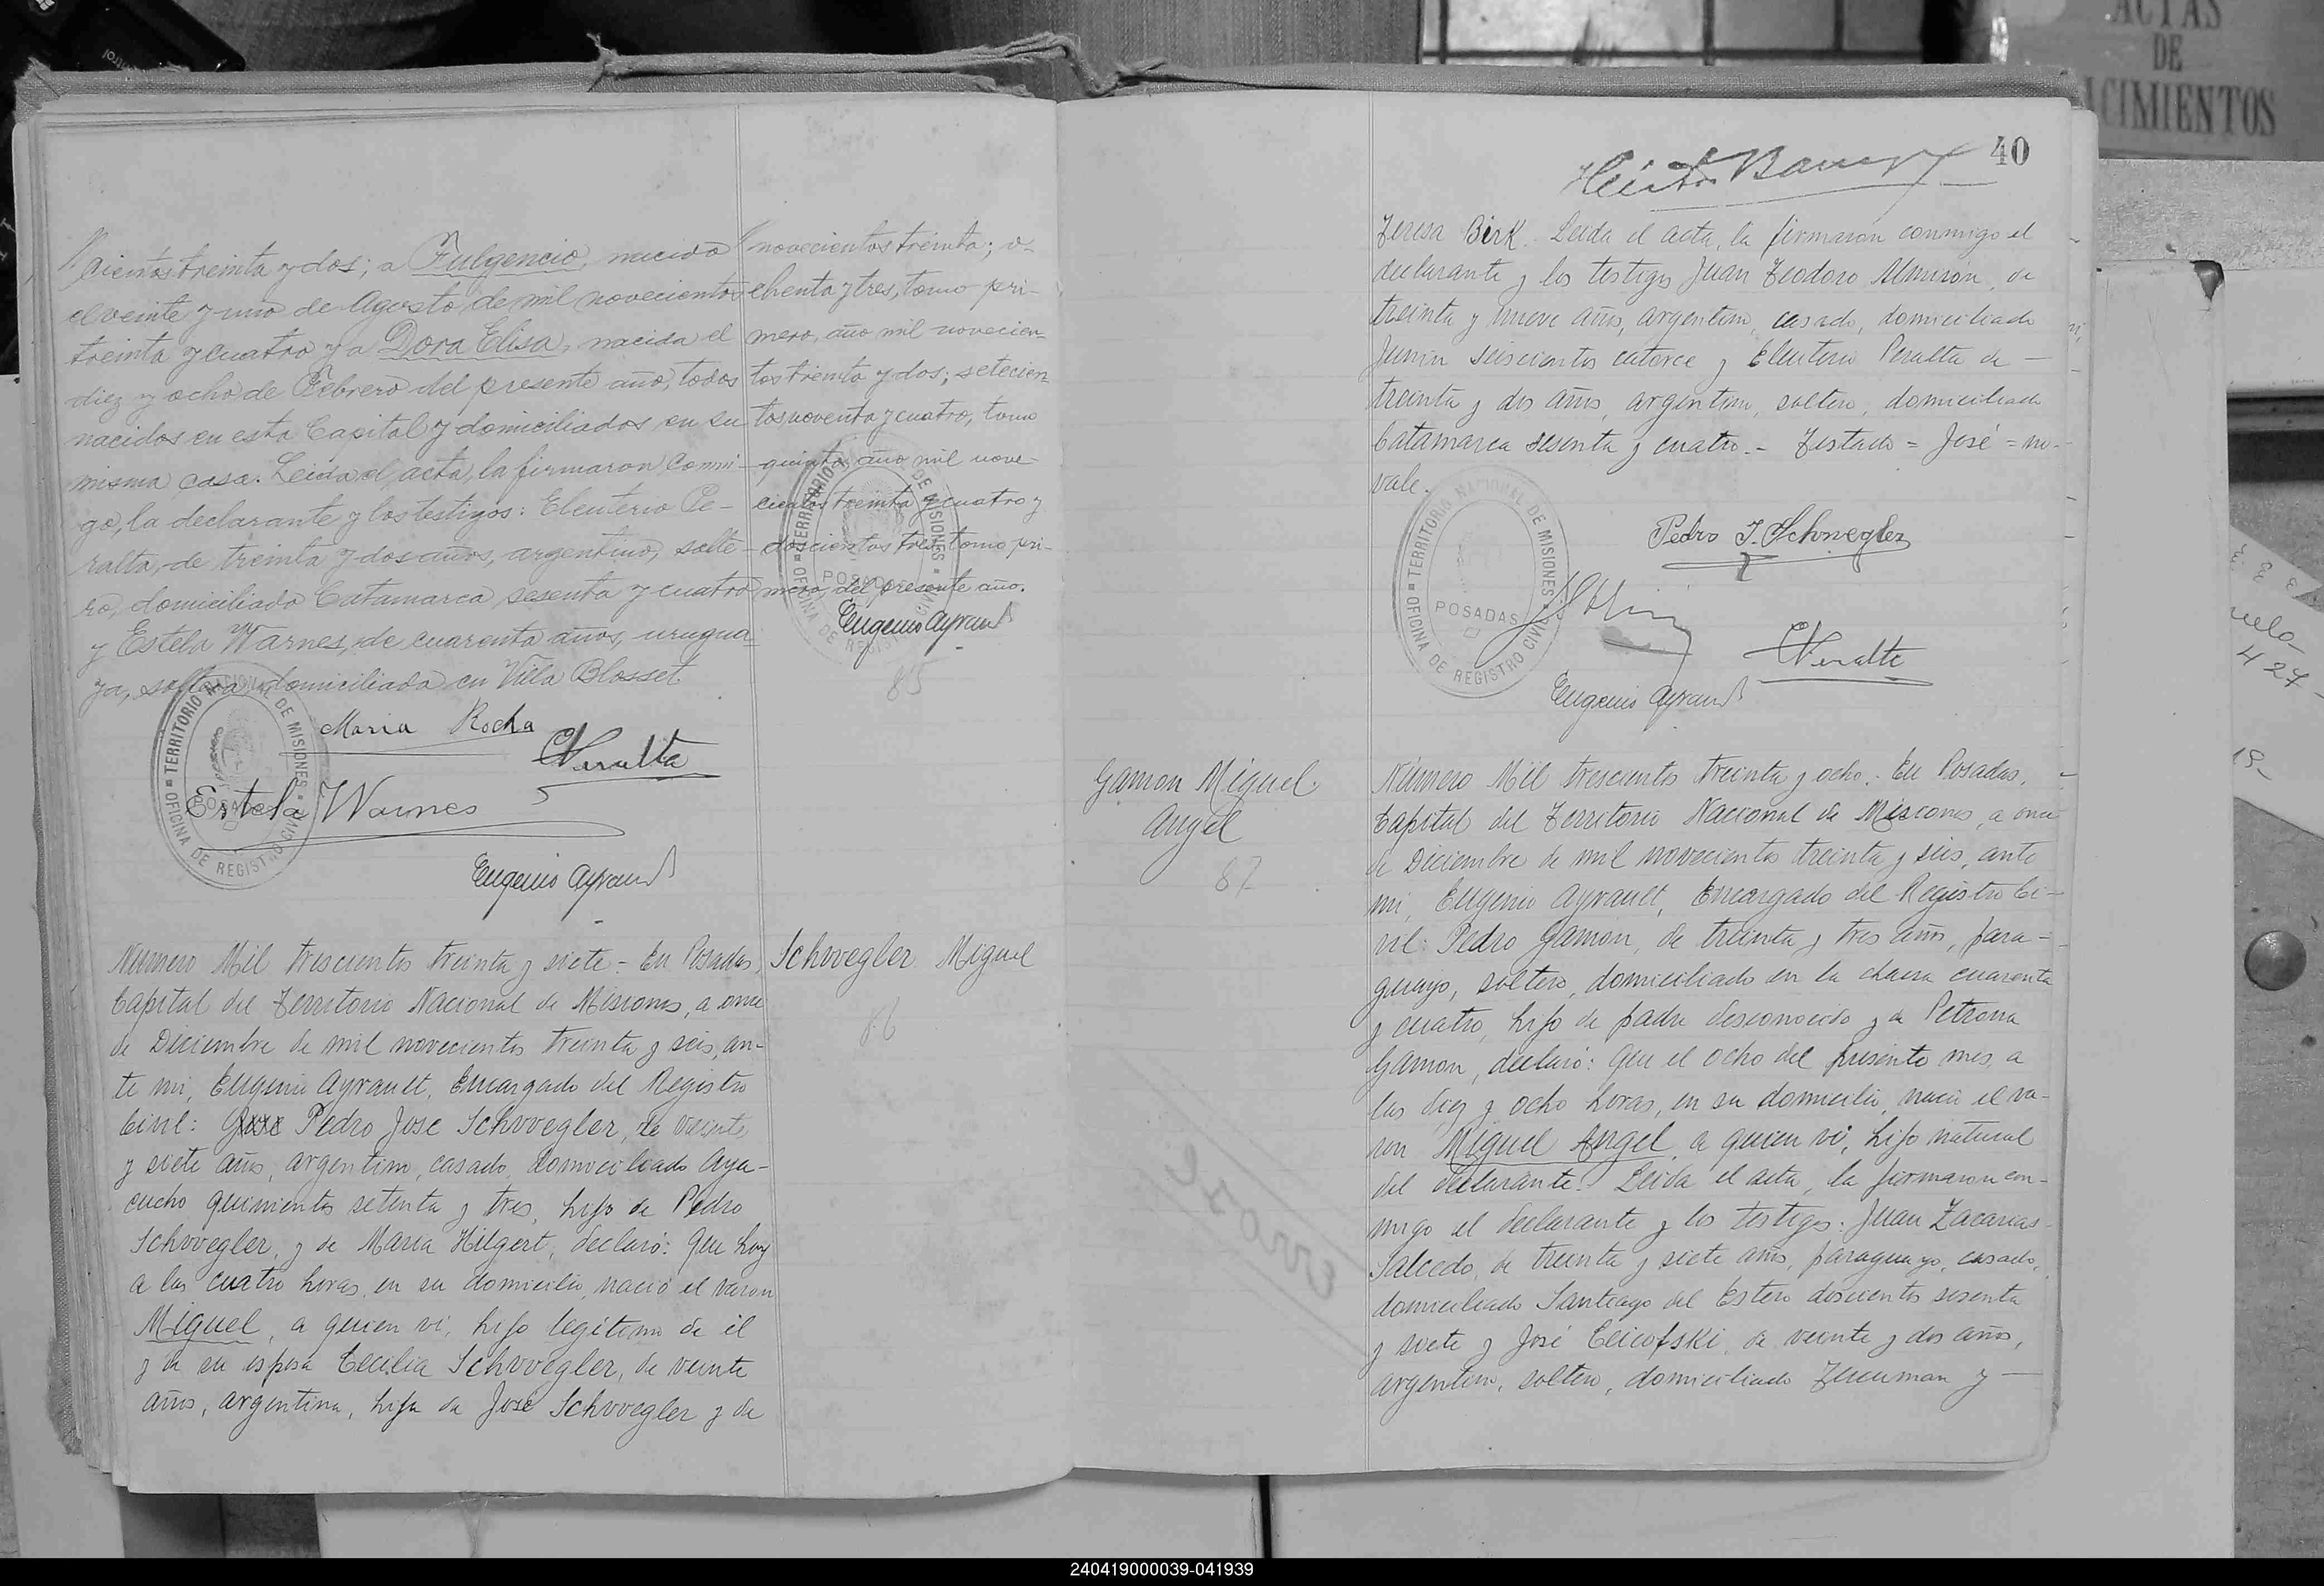 cientos treinta y dos; a Fulgencio, nacido
el veinte y uno de Agosto de mil novecientos
treinta y cuatro y a Dora Elisa, nacida el
diez y ocho de Febrero del presente año, todos
nacidos en esta Capital y domiciliados en su
misma casa. Leida el acta, la firmaron conmi-
go, la declarante y los testigos: Eleuterio Pe-
ralta, de treinta y dos años, argentino, solte-
ro, domiciliado Catamarca sesenta y cuatro
y Estela Warnes, de cuarenta años, urugua-
ya, soltera domiciliada en Villa Blosset.
Maria Rocha
EPeralta
Estela Warnes
Eugenio Ayrault
novecientos treinta; o-
chenta y tres, tomo pri-
mero, año mil novecien-
tos treinta y dos; setecien
tos noventa y cuatro, tomo
quinto, año mil nove-
cientos treinta y cuatro y
doscientos tres, tomo pri-
mero, del presente año.
Eugenio Ayrault
TERRITORIO NACIONAL DE MISIONES
POSADAS
OFICINA DE REGISTRO CIVIL
85
Número Mil trescientos treinta y siete - En Posadas,
Capital del Territorio Nacional de Misiones, a once
de Diciembre de mil novecientos treinta y seis, an-
te mi, Eugenio Ayrault, Encargado del Registro
Civil: José Pedro Jose Schwegler, de veinte
y siete años, argentino, casado, domiciliado Aya-
cucho quinientos setenta y tres, hijo de Pedro
Schwegler, y de Maria Hilgert, declaró: Que hoy
a las cuatro horas, en su domicilio, nació el varon
Miguel, a quien vi, hijo legítimo de él
y de su esposa Cecilia Schwegler, de veinte
años, argentina, hija de José Schwegler y de
Schwegler Miguel
86
40
Teresa Birk. Leida el acta, la firmaron conmigo el
declarante y los testigos Juan Teodoro Almirón, de
treinta y nueve años, argentino, casado, domiciliado
Junin seiscientos catorce y Eleuterio Peralta de
treinta y dos años, argentino, soltero, domiciliado
Catamarca sesenta y cuatro. - Testado = José = no-
vale.
Pedro J. Schwegler
EPeralta
Eugenio Ayrault
TERRITORIO NACIONAL DE MISIONES
POSADAS
OFICINA DE REGISTRO CIVIL
Gamon Miguel
Angel
87
Número Mil trescientos treinta y ocho. En Posadas,
Capital del Territorio Nacional de Misiones, a once
de Diciembre de mil novecientos treinta y seis, ante
mi, Eugenio Ayrault, Encargado del Registro Ci-
vil: Pedro Gamon, de treinta y tres años, para-
guayo, soltero, domiciliado en la chacra cuarenta
y cuatro, hijo de padre desconocido y de Petrona
Gamon, declaró: Que el ocho del presente mes, a
las diez y ocho horas, en su domicilio, nació el va-
ron Miguel Angel, a quien vi, hijo natural
del declarante. Leida el acta, la firmaron con-
migo el declarante y los testigos: Juan Zacarias
Salcedo, de treinta y siete años, paraguayo, casado,
domiciliado Santiago del Estero doscientos sesenta
y siete y José Elicofski, de veinte y dos años,
argentino, soltero, domiciliado Tucuman y
ACTAS
DE
CIMIENTOS
427
240419000039-041939